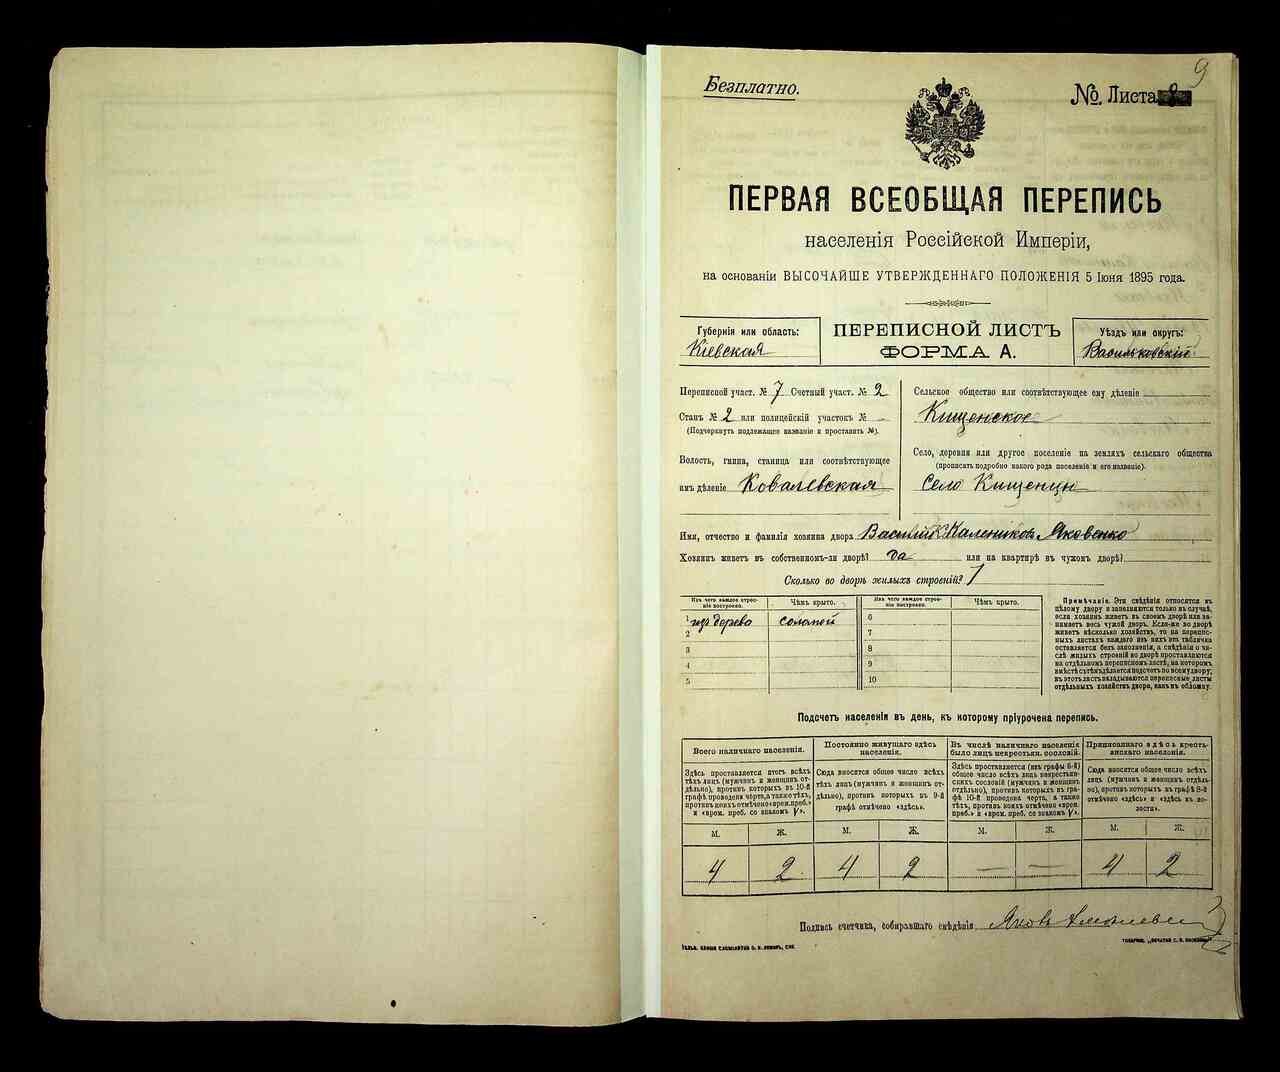 9
Безплатно.
№. Листа
ПЕРВАЯ ВСЕОБЩАЯ ПЕРЕПИСЬ
населенія Россійской Имперіи,
на основаніи ВЫСОЧАЙШЕ УТВЕРЖДЕННАГО ПОЛОЖЕНІЯ 5 Іюня 1895 года.
Губернія или область:
Кіевская
ПЕРЕПИСНОЙ ЛИСТЪ
ФОРМА А.
Уѣздъ или округъ:
Васильковскій
Переписной участ. № 7 Счетный участ. № 2
Станъ № 2 или полицейскій участокъ № –
(Подчеркнуть подлежащее названіе и проставить №).
Волость, гмина, станица или соотвѣтствующее
имъ дѣленіе Ковалевская
Сельское общество или соотвѣтствующее ему дѣленіе
Кищенское
Село, деревня или другое поселеніе на земляхъ сельскаго общества
(прописать подробно какого рода поселеніе и его названіе).
Село Кищенцы
Имя, отчество и фамилія хозяина двора Василій Калениковъ Яковенко
Хозяинъ живетъ въ собственномъ-ли дворѣ? да или на квартирѣ въ чужомъ дворѣ?
Сколько во дворѣ жилыхъ строеній? 1
Изъ чего каждое строе-
ніе построено.
Чѣмъ крыто.
1 изъ дерева соломой
2
3
4
5
Изъ чего каждое строе-
ніе построено.
Чѣмъ крыто.
6
7
8
9
10
Примѣчаніе. Эти свѣдѣнія относятся къ
цѣлому двору и заполняются только въ случаѣ,
если хозяинъ живетъ въ своемъ дворѣ или за-
нимаетъ весь чужой дворъ. Если-же во дворѣ
живетъ нѣсколько хозяйствъ, то на перепис-
ныхъ листахъ каждаго изъ нихъ эта табличка
оставляется безъ заполненія, а свѣдѣнія о чи-
слѣ жилыхъ строеній во дворѣ проставляются
на отдѣльномъ переписномъ листѣ, на которомъ
вмѣстѣ съ тѣмъ дѣлается подсчетъ по всему двору;
въ этотъ листъ вкладываются переписные листы
отдѣльныхъ хозяйствъ двора, какъ въ обложку.
Подсчетъ населенія въ день, къ которому пріурочена перепись.
Всего наличнаго населенія.
Здѣсь проставляется итогъ всѣхъ
тѣхъ лицъ (мужчинъ и женщинъ от-
дѣльно), противъ которыхъ въ 10-й
графѣ проведена черта, а также тѣхъ,
противъ коихъ отмѣчено «врем. преб.»
и «врем. преб. со знакомъ V».
М. Ж.
4 2
Постоянно живущаго здѣсь
населенія.
Сюда вносится общее число всѣхъ
тѣхъ лицъ (мужчинъ и женщинъ от-
дѣльно), противъ которыхъ въ 9-й
графѣ отмѣчено «здѣсь».
М. Ж.
4 2
Въ числѣ наличнаго населенія
было лицъ некрестьян. сословій.
Здѣсь проставляется (изъ графы 6-й)
общее число всѣхъ лицъ некрестьян-
скихъ сословій (мужчинъ и женщинъ
отдѣльно), противъ которыхъ въ
графѣ 10-й проведена черта, а также
тѣхъ, противъ коихъ отмѣчено «врем.
преб.» и «врем. преб. со знакомъ V».
М. Ж.
– –
Приписаннаго здѣсь кресть-
янскаго населенія.
Сюда вносится общее число всѣхъ
лицъ (мужчинъ и женщинъ отдѣль-
но), противъ которыхъ въ графѣ 8-й
отмѣчено «здѣсь» и «здѣсь къ во-
лости».
М. Ж.
4 2
Подпись счетчика, собиравшаго свѣдѣнія Яковъ